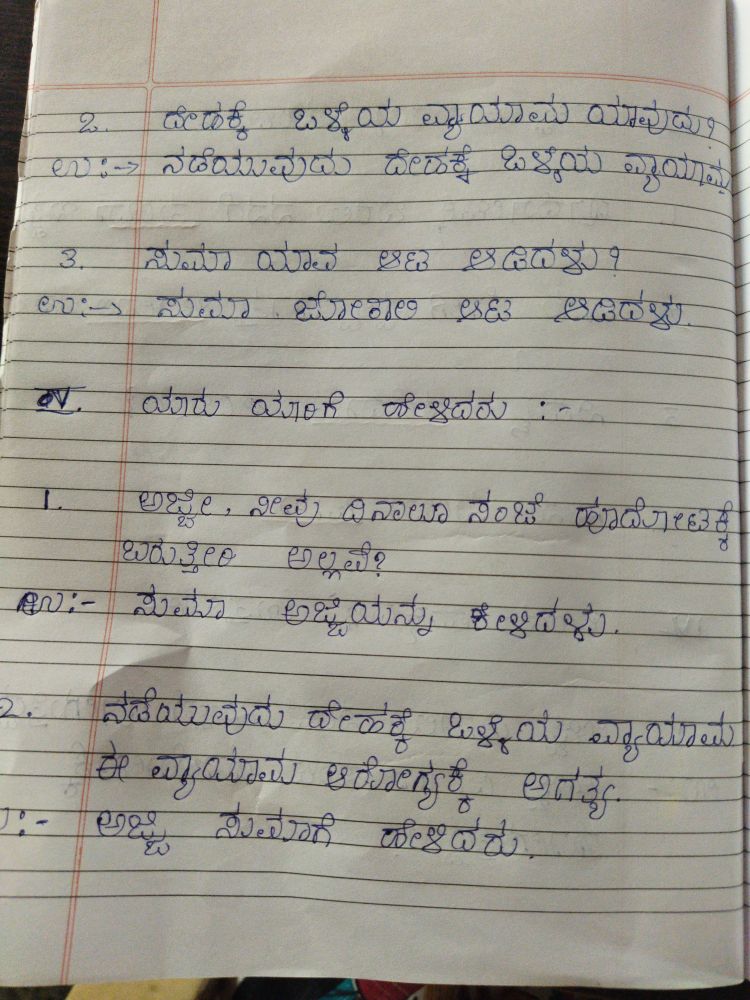 2. ದೇಹಕ್ಕೆ ಒಳ್ಳೆಯ ವ್ಯಾಯಾಮ ಯಾವುದು?
ಉ:→ ನಡೆಯುವುದು ದೇಹಕ್ಕೆ ಒಳ್ಳೆಯ ವ್ಯಾಯಾಮ
3. ಸುಮಾ ಯಾವ ಆಟ ಆಡಿದಳು?
ಉ:→ ಸುಮಾ ಜೋಕಾಲಿ ಆಟ ಆಡಿದಳು.
IV. ಯಾರು ಯಾರಿಗೆ ಹೇಳಿದರು :-
1. ಅಜ್ಜೀ, ನೀವು ದಿನಾಲೂ ಸಂಜೆ ಹೂದೋಟಕ್ಕೆ
ಬರುತ್ತೀರಿ ಅಲ್ಲವೆ?
ಉ:- ಸುಮಾ ಅಜ್ಜಿಯನ್ನು ಕೇಳಿದಳು.
2. ನಡೆಯುವುದು ದೇಹಕ್ಕೆ ಒಳ್ಳೆಯ ವ್ಯಾಯಾಮ
ಈ ವ್ಯಾಯಾಮ ಆರೋಗ್ಯಕ್ಕೆ ಅಗತ್ಯ.
ಉ:- ಅಜ್ಜಿ ಸುಮಾಗೆ ಹೇಳಿದರು.